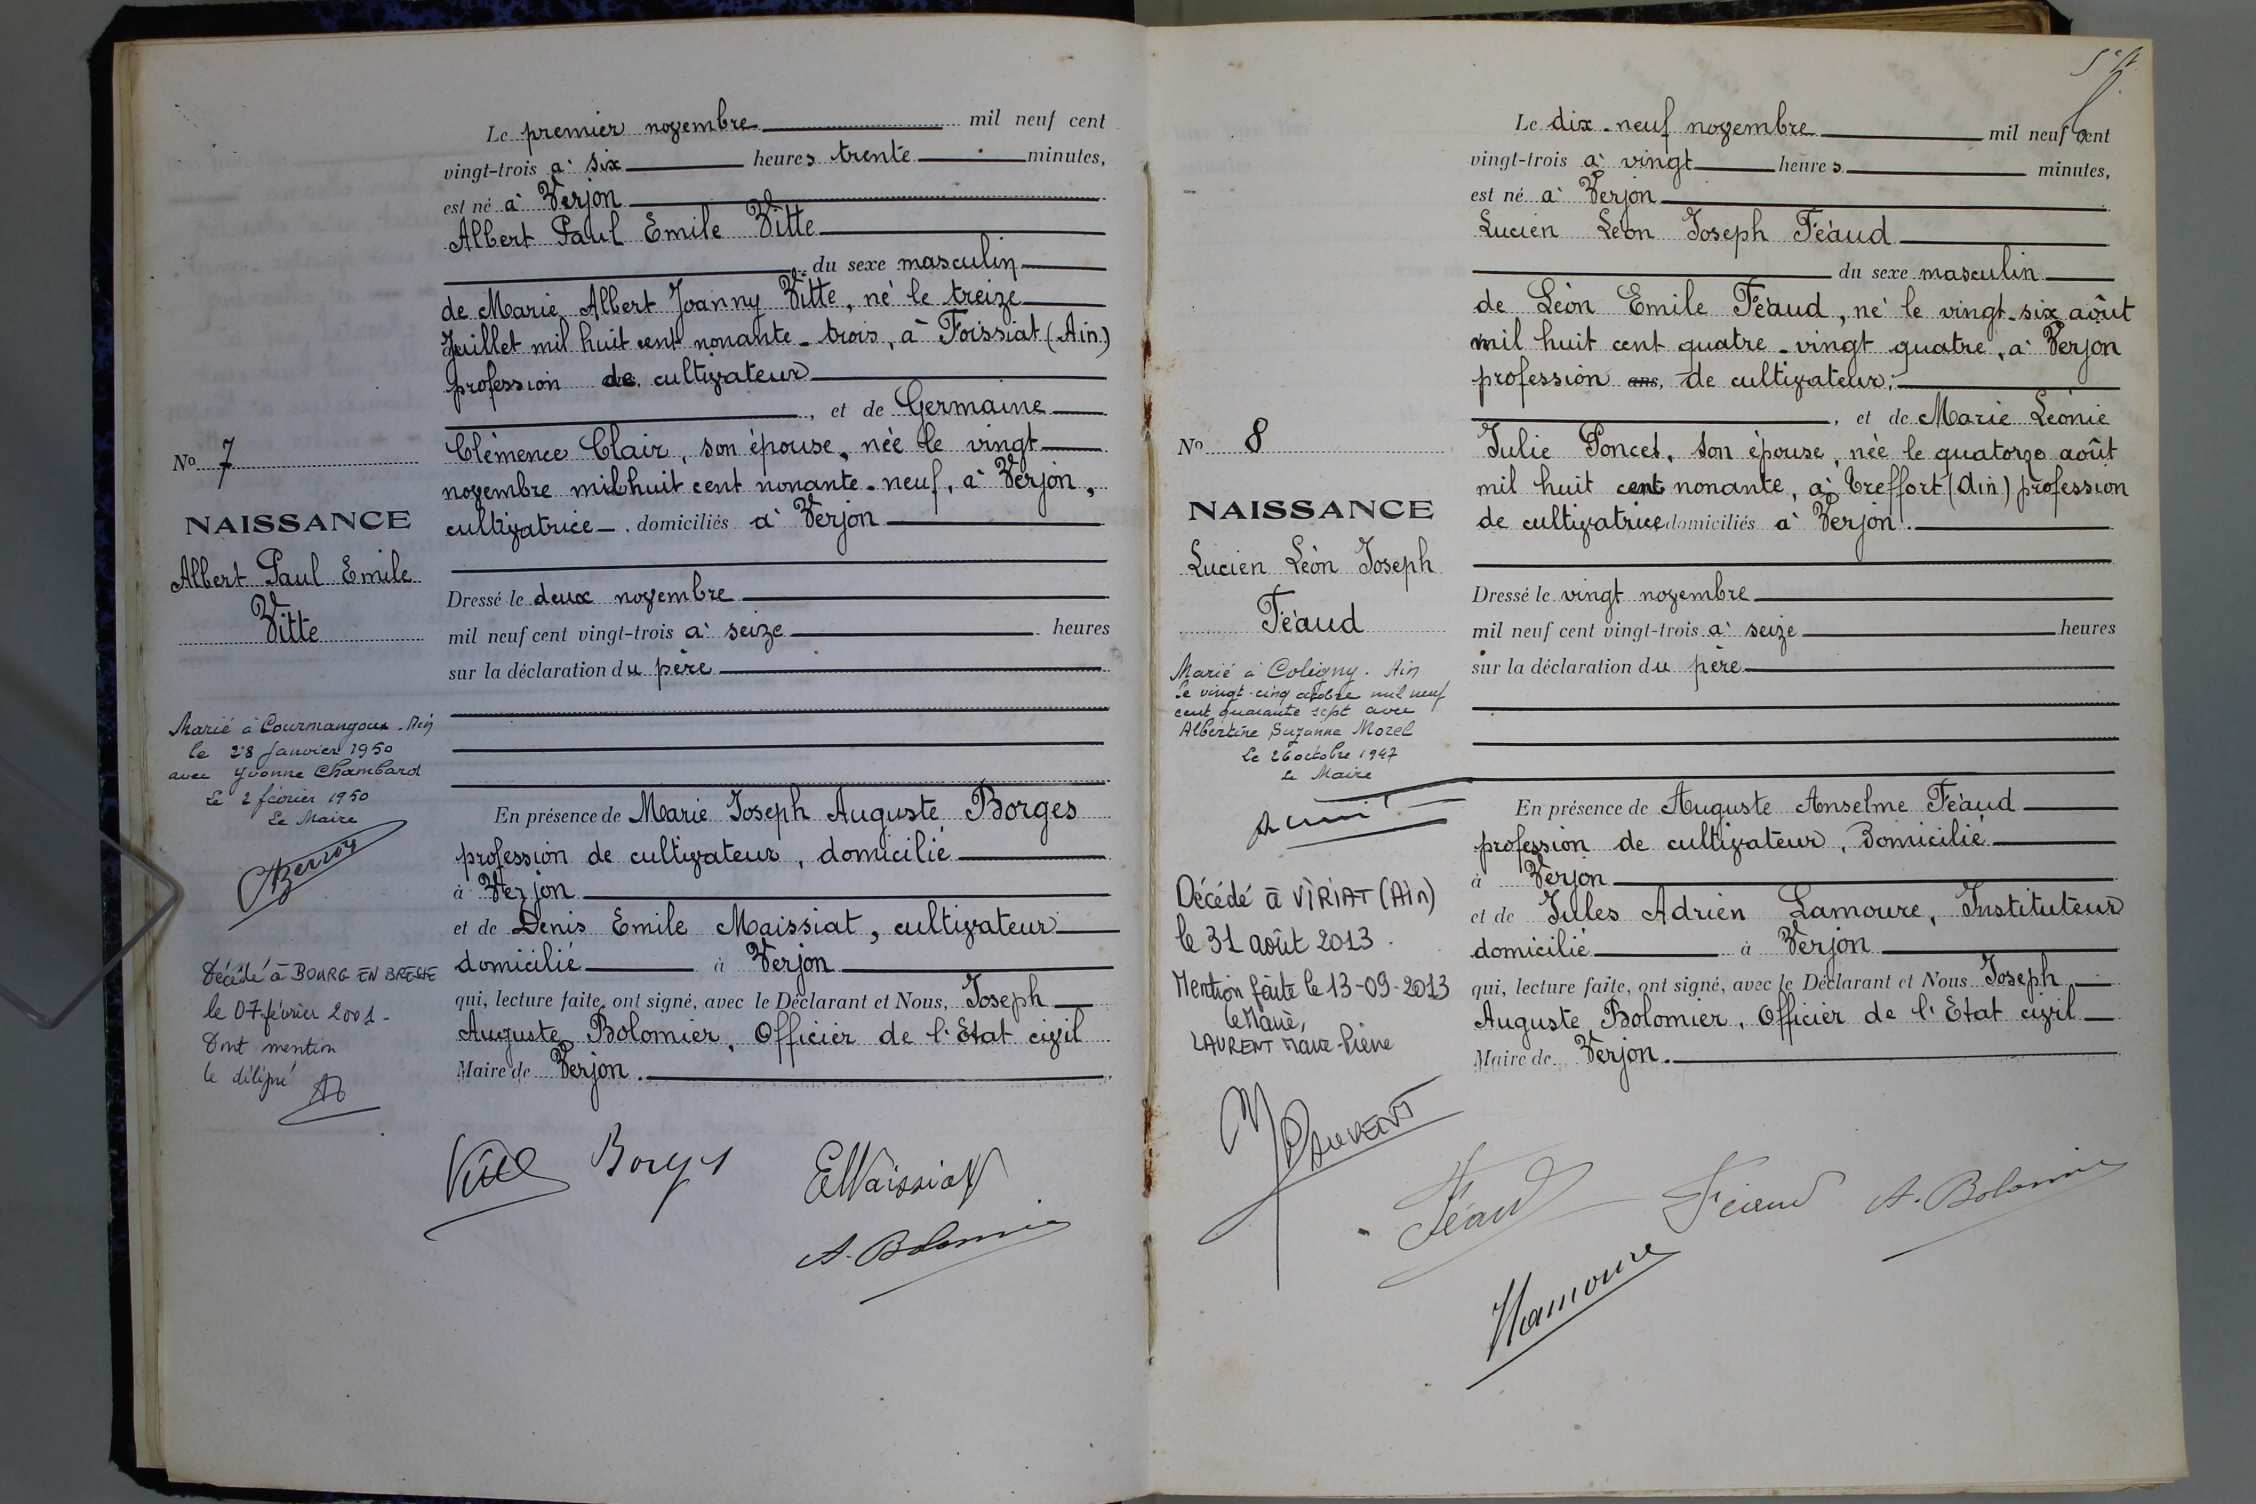 Le premier novembre mil neuf cent
vingt-trois à six heures trente minutes,
est né à Verjon
Albert Paul Emile Vitte
du sexe masculin
de Marie Albert Joanny Vitte, né le treize
Juillet mil huit cent nonante-trois, à Foissiat (Ain)
profession de cultivateur
, et de Germaine
Clémence Clair, son épouse, née le vingt
novembre mil huit cent nonante-neuf, à Verjon,
cultivatrice, domiciliés à Verjon
Dressé le deux novembre
mil neuf cent vingt-trois à seize heures
sur la déclaration du père
En présence de Marie Joseph Auguste Borges
profession de cultivateur, domicilié
à Verjon
et de Denis Emile Maissiat, cultivateur
domicilié à Verjon
qui, lecture faite, ont signé, avec le Déclarant et Nous, Joseph
Auguste Bolomier, Officier de l'Etat civil
Maire de Verjon.
Vitte Borges EMaissiat
A. Bolomier
No 7
NAISSANCE
Albert Paul Emile
Vitte
Marié à Courmangoux - Ain
le 28 Janvier 1950
avec Yvonne Chambard
Le 2 février 1950
Le Maire
Décédé à BOURG EN BRESSE
le 07 février 2001.
Dont mention
le délégué
Le dix-neuf novembre mil neuf cent
vingt-trois à vingt heures minutes,
est né à Verjon
Lucien Léon Joseph Féaud
du sexe masculin
de Léon Emile Féaud, né le vingt-six août
mil huit cent quatre-vingt quatre, à Verjon
profession ans, de cultivateur,
, et de Marie Léonie
Julie Poncet, son épouse, née le quatorze août
mil huit cent nonante, à Treffort (Ain) profession
de cultivatrice domiciliés à Verjon.
Dressé le vingt novembre
mil neuf cent vingt-trois à seize heures
sur la déclaration du père
En présence de Auguste Anselme Féaud
profession de cultivateur, Domicilié
à Verjon
et de Jules Adrien Lamoure, Instituteur
domicilié à Verjon
qui, lecture faite, ont signé, avec le Déclarant et Nous Joseph
Auguste Bolomier, Officier de l'Etat civil
Maire de Verjon.
Féaud Féaud A. Bolomier
Lamoure
No 8
NAISSANCE
Lucien Léon Joseph
Féaud
Marié à Coligny. Ain
le vingt-cinq octobre mil neuf
cent quarante sept avec
Albertine Suzanne Morel
Le 26 octobre 1947
Le Maire
Décédé à VIRIAT (Ain)
le 31 août 2013.
Mention faite le 13-09-2013
le Maire,
LAURENT Marc-Pierre